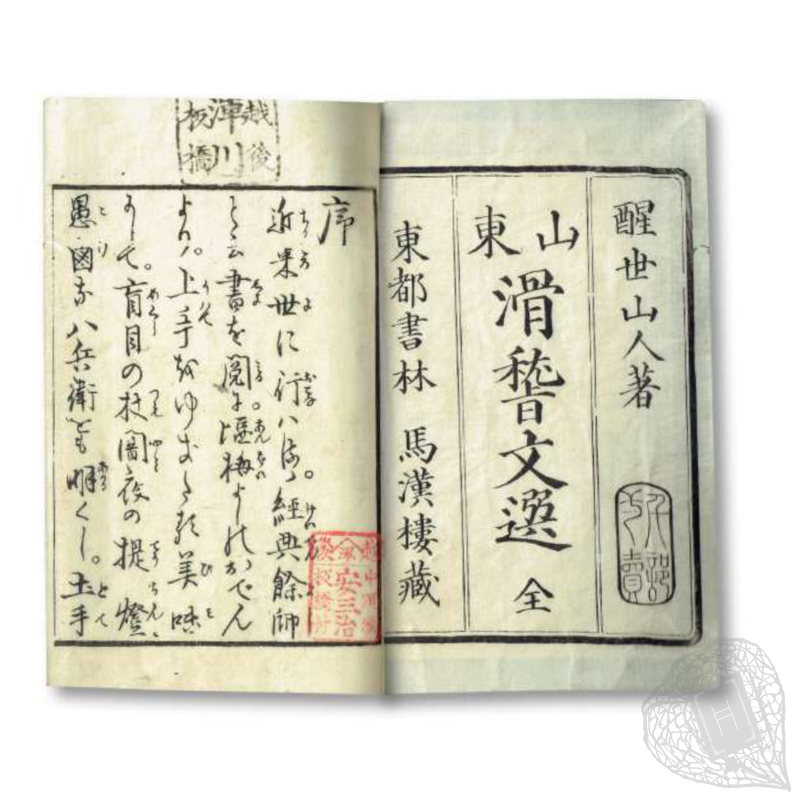 醒世山人著
山東
滑稽文選 全
東都書林 馬漢樓藏
越後
津川
板橋
序
近来世に行ハるゝ經典餘師
と云書を閲に塩梅よしのおでん
より。上手をゆおうる美味
にして。盲目の杖闇夜の提燈
愚図な八兵衛も明くし。土手
安三治